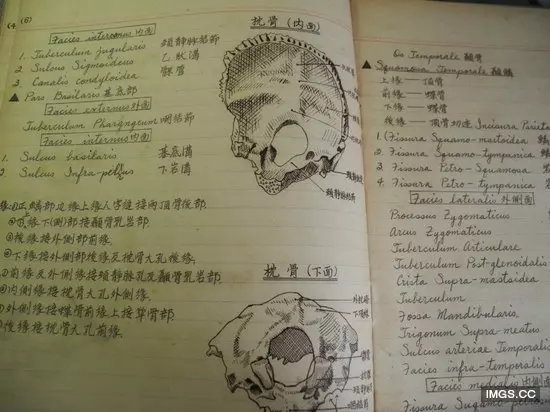 (4) (6)
Facies internus 内面
1. Tuberculum jugularis 頸静脉結節
2. Sulcus Sigmoideus 乙狀溝
3. Canalis condyloidea 髁管
▲ Pars Basilaris 基底部
Facies externus 外面
Tuberculum Pharyngeum 咽結節
Facies internus 内面
1. Sulcus basilaris 基底溝
2 Sulcus Infra-petrosus 下岩溝
下緣(側)部接顳骨乳岩部
後緣接外側部前緣
下緣接外側部後緣及枕骨大孔後緣
前緣及外側緣接頸静脉孔及顳骨乳岩部
内側緣接枕骨大孔外側緣
外側緣接蝶骨前緣上接草骨部
後緣接枕骨大孔前緣
枕骨 (内面)
頸静脉結節
枕骨 (下面)
Os Temporale 顳骨
▲ Squamosa Temporale 顳鱗
上緣——頂骨
前緣——蝶骨
下緣——蝶骨
後緣——頂骨切迹 Incisura Parieta
1. (Fissura Squamo-mastoidea
2 Fissura Squamo-tympanica
3 Fissura Petro-Squamosa
4. Fissura Petro-tympanica
Facies lateralis 外側面
Processus Zygomaticus
Arcus Zygomaticus
Tuberculum Articulare
Tuberculum Post-glenoidalis
Crista Supra-mastoidea
Tuberculum
Fossa Mandibularis
Trigonum Supra-meatus
Sulcus arteriae Temporalis
Facies infra-temporalis
Facies medialis 内側面
Fissura Squamo-petrosa
IMGS.CC